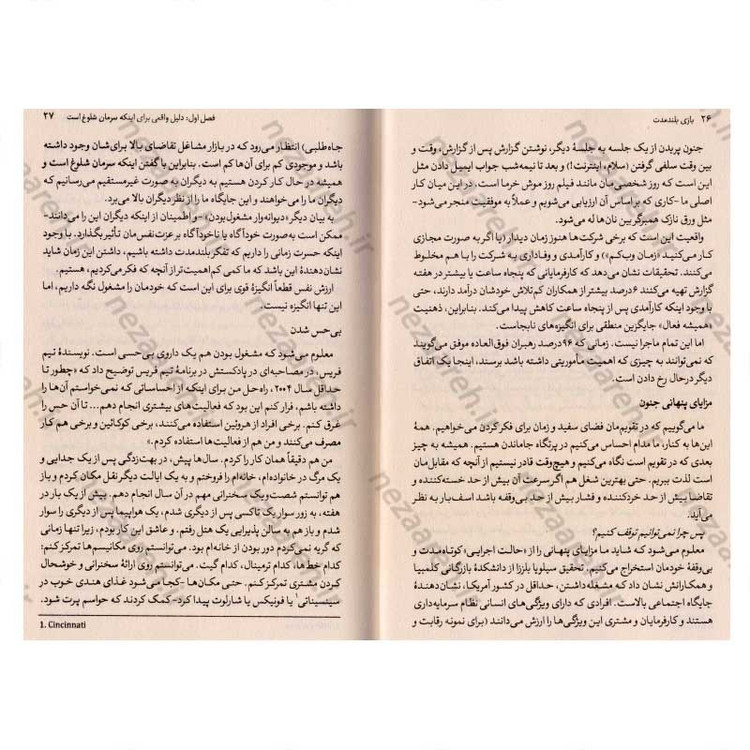 ۲۶ بازی بلندمدت
جنون پریدن از یک جلسه به جلسهٔ دیگر، نوشتن گزارش پس از گزارش، وقت و
بین وقت سلفی گرفتن (سلام، اینترنت!) و بعد تا نیمه‌شب جواب ایمیل دادن مثل
این است که روز شخصی‌مان مانند فیلم روز موش خرما است. در این میان کار
اصلی ما -کاری که بر اساس آن ارزیابی می‌شویم و عملاً به موفقیت منجر می‌شود-
مثل ورق نازک همبرگر بین نان‌ها له می‌شود.
واقعیت این است که برخی شرکت‌ها هنوز زمان دیدار (یا اگر به صورت مجازی
کار می‌کنید «زمان وب‌کم») و کارآمدی و وفاداری به شرکت را با هم مخلوط
می‌کنند. تحقیقات نشان می‌دهد که کارفرمایانی که پنجاه ساعت یا بیشتر در هفته
گزارش تهیه می‌کنند ۶درصد بیشتر از همکاران کم‌تلاش خودشان درآمد دارند، حتی
با وجود اینکه کارآمدی پس از پنجاه ساعت کاهش پیدا می‌کند. بنابراین، ذهنیت
«همیشه فعال» جایگزین منطقی برای انگیزه‌های نابجاست.
اما این تمام ماجرا نیست. زمانی که ۹۶درصد رهبران فوق‌العاده موفق می‌گویند
که نمی‌توانند به چیزی که اهمیت مأموریتی داشته باشد برسند، اینجا یک اتفاق
دیگر درحال رخ دادن است.
مزایای پنهانی جنون
ما می‌گوییم که در تقویم‌مان فضای سفید و زمان برای فکر کردن می‌خواهیم. همهٔ
این‌ها به کنار، ما مدام احساس می‌کنیم در پرتگاه جاماندن هستیم. همیشه به چیز
بعدی که در تقویم است نگاه می‌کنیم و هیچ‌وقت قادر نیستیم از آنچه که مقابل‌مان
است لذت ببریم. حتی بهترین شغل هم اگر سرعت آن بیش از حد خسته‌کننده و
تقاضا بیش از حد خردکننده و فشار بیش از حد بی‌وقفه باشد اسف‌بار به نظر
می‌آید.
پس چرا نمی‌توانیم توقف کنیم؟
معلوم می‌شود که شاید ما مزایای پنهانی را از «حالت اجرایی» کوتاه‌مدت و
بی‌وقفهٔ خودمان استخراج می‌کنیم. تحقیق سیلویا بلِززا از دانشکدهٔ بازرگانی کلمبیا
و همکارانش نشان داد که مشغله‌داشتن، حداقل در کشور آمریکا، نشان‌دهندهٔ
جایگاه اجتماعی بالاست. افرادی که دارای ویژگی‌های انسانی نظام سرمایه‌داری
هستند و کارفرمایان و مشتری این ویژگی‌ها را ارزش می‌دانند (برای نمونه رقابت و
فصل اول: دلیل واقعی برای اینکه سرمان شلوغ است ۲۷
جاه‌طلبی) انتظار می‌رود که در بازار مشاغل تقاضای بالا برای‌شان وجود داشته
باشد و موجودی کم برای آن‌ها کم است. بنابراین با گفتن اینکه سرمان شلوغ است و
همیشه در حال کار کردن هستیم به دیگران به صورت غیرمستقیم می‌رسانیم که
دیگران ما را می‌خواهند و این جایگاه ما را از نظر دیگران بالا می‌برد.
به بیان دیگر «دیوانه‌وار مشغول بودن» -واطمینان از اینکه دیگران این را می‌دانند-
ممکن است به‌صورت خودآگاه یا ناخودآگاه بر عزت‌نفس‌مان تأثیر بگذارد. با وجود
اینکه حسرت زمانی را داریم که تفکر بلندمدت داشته باشیم، داشتن این زمان شاید
نشان‌دهندهٔ این باشد که ما کمی کم‌اهمیت‌تر از آنچه که فکر می‌کردیم، هستیم.
ارزش نفس قطعاً انگیزهٔ قوی برای این است که خودمان را مشغول نگه داریم، اما
این تنها انگیزه نیست.
بی‌حس شدن
معلوم می‌شود که مشغول بودن هم یک داروی بی‌حسی است. نویسندهٔ تیم
فریس، در مصاحبه‌ای در پادکستش در برنامهٔ تیم فریس توضیح داد که «چطور تا
حداقل سال ۲۰۰۴، راه‌حل من برای اینکه از احساساتی که نمی‌خواستم آن‌ها را
داشته باشم، فرار کنم این بود که فعالیت‌های بیشتری انجام دهم... تا آن حس را
غرق کنم. برخی افراد از هروئین استفاده می‌کنند، برخی کوکائین و برخی هم کار
مصرف می‌کنند و من هم از فعالیت‌ها استفاده کردم.»
من هم دقیقاً همان کار را کردم. سال‌ها پیش، در بهت‌زدگی پس از یک جدایی و
یک مرگ در خانواده‌ام، خانه‌ام را فروختم و به یک ایالت دیگر نقل مکان کردم و باز
هم توانستم شصت‌ویک سخنرانی مهم در آن سال انجام دهم. بیش از یک بار در
هفته، به زور سوار یک تاکسی پس از دیگری شدم، یک هواپیما پس از دیگری را سوار
شدم و باز هم به سالن پذیرایی یک هتل رفتم. و عاشق این کار بودم، زیرا تنها زمانی
که گریه نمی‌کردم دور بودن از خانه‌ام بود. می‌توانستم روی مکانیسم‌ها تمرکز کنم:
کدام خط‌ها، کدام ترمینال، کدام گیت. می‌توانستم روی ارائهٔ سخنرانی و خوشحال
کردن مشتری تمرکز کنم. حتی مکان‌ها -کجا می‌شود غذای هندی خوب در
سینسیناتی۱ یا فونیکس یا شارلوت پیدا کرد- کمک کردند که حواسم پرت شود.
1. Cincinnati